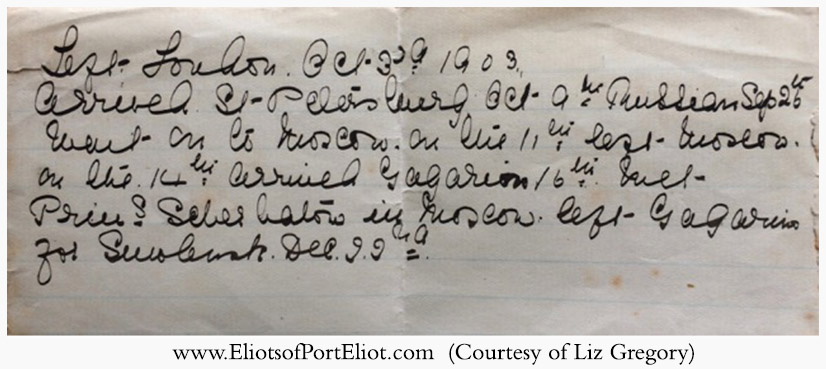 Left London. Oct 3rd 1903.
Arrived St Petersburg Oct 9th Russian Sep 26th
Went on to Moscow. on the 11th left Moscow.
on the 14th arrived Gagarino 16th. Met
Prins Scherbatow in Moscow. left Gagarino
for Smolensk. Dec. 22nd.
www.EliotsofPortEliot.com (Courtesy of Liz Gregory)